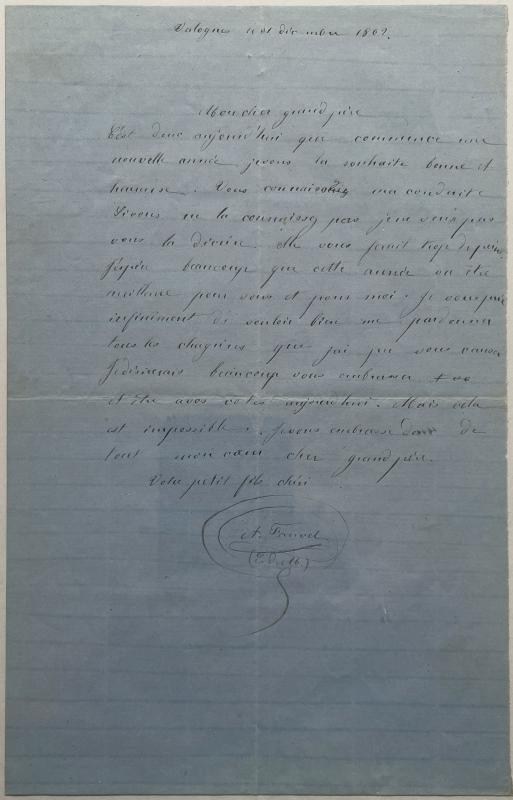 Valognes le 31 décembre 1862.
Mon cher grand père
C'est donc aujourd'hui que commence une
nouvelle année je vous la souhaite bonne et
heureuse. Vous connaissez ma conduite
Si vous ne la connaissez pas je ne veux pas
vous la décrire. Ça vous ferait trop de peine
J'espère beaucoup que cette année va être
meilleure pour vous et pour moi. Je vous prie
infiniment de vouloir bien me pardonner
tous les chagrins que j'ai pu vous causer
Je désirerais beaucoup vous embrasser
et être à vos cotés aujourd'hui. Mais cela
est impossible. Je vous embrasse donc de
tout mon cœur cher grand père.
Votre petit fils chéri
A.